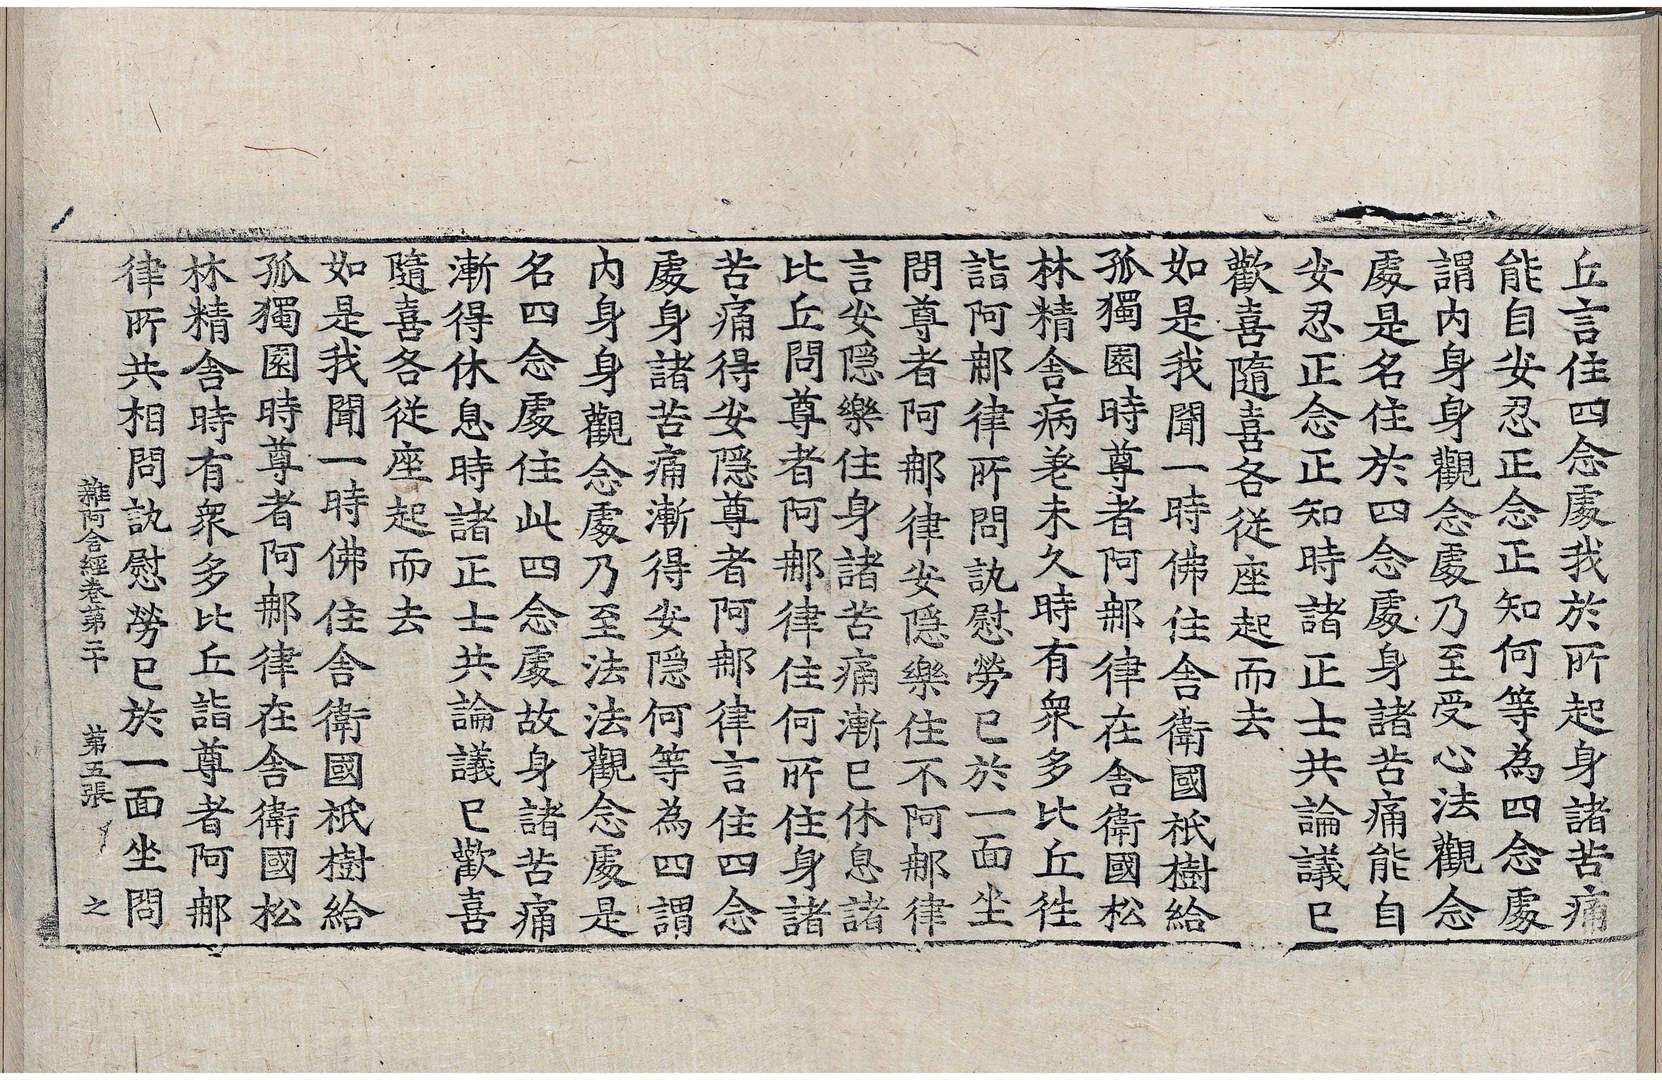 丘言住四念處我於所起身諸苦痛
能自安忍正念正知何等為四念處
謂内身身觀念處乃至受心法觀念
處是名住於四念處身諸苦痛能自
安忍正念正知時諸正士共論議已
歡喜隨喜各從座起而去
如是我聞一時佛住舍衛國祇樹給
孤獨園時尊者阿那律在舍衛國松
林精舍病差未久時有衆多比丘往
詣阿那律所問訊慰勞已於一面坐
問尊者阿那律安隱樂住不阿那律
言安隱樂住身諸苦痛漸已休息諸
比丘問尊者阿那律住何所住身諸
苦痛得安隱尊者阿那律言住四念
處身諸苦痛漸得安隱何等為四謂
内身身觀念處乃至法法觀念處是
名四念處住此四念處故身諸苦痛
漸得休息時諸正士共論議已歡喜
隨喜各從座起而去
如是我聞一時佛住舍衛國祇樹給
孤獨園時尊者阿那律在舍衛國松
林精舍時有衆多比丘詣尊者阿那
律所共相問訊慰勞已於一面坐問
雜阿含經卷第二十 第五張 之